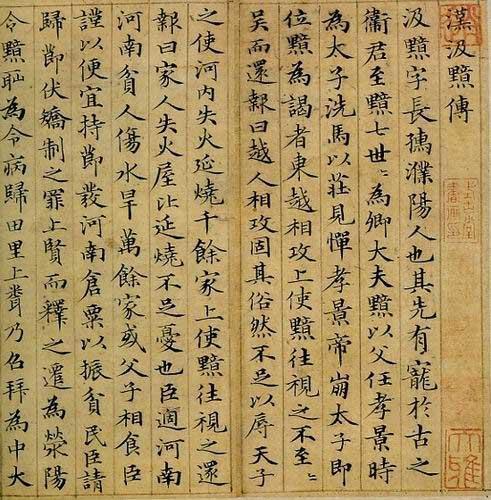 漢汲黯傳
汲黯字長孺濮陽人也其先有寵於古之
衛君至黯七世〻為卿大夫黯以父任孝景時
為太子洗馬以莊見憚孝景帝崩太子即
位黯為謁者東越相攻上使黯往視之不至〻
吳而還報曰越人相攻固其俗然不足以辱天子
之使河内失火延燒千餘家上使黯往視之還
報曰家人失火屋比延燒不足憂也臣適河南
河南貧人傷水旱萬餘家或父子相食臣
謹以便宜持節發河南倉粟以振貧民臣請
歸節伏矯制之罪上賢而釋之遷為滎陽
令黯恥為令病歸田里上聞乃召拜為中大